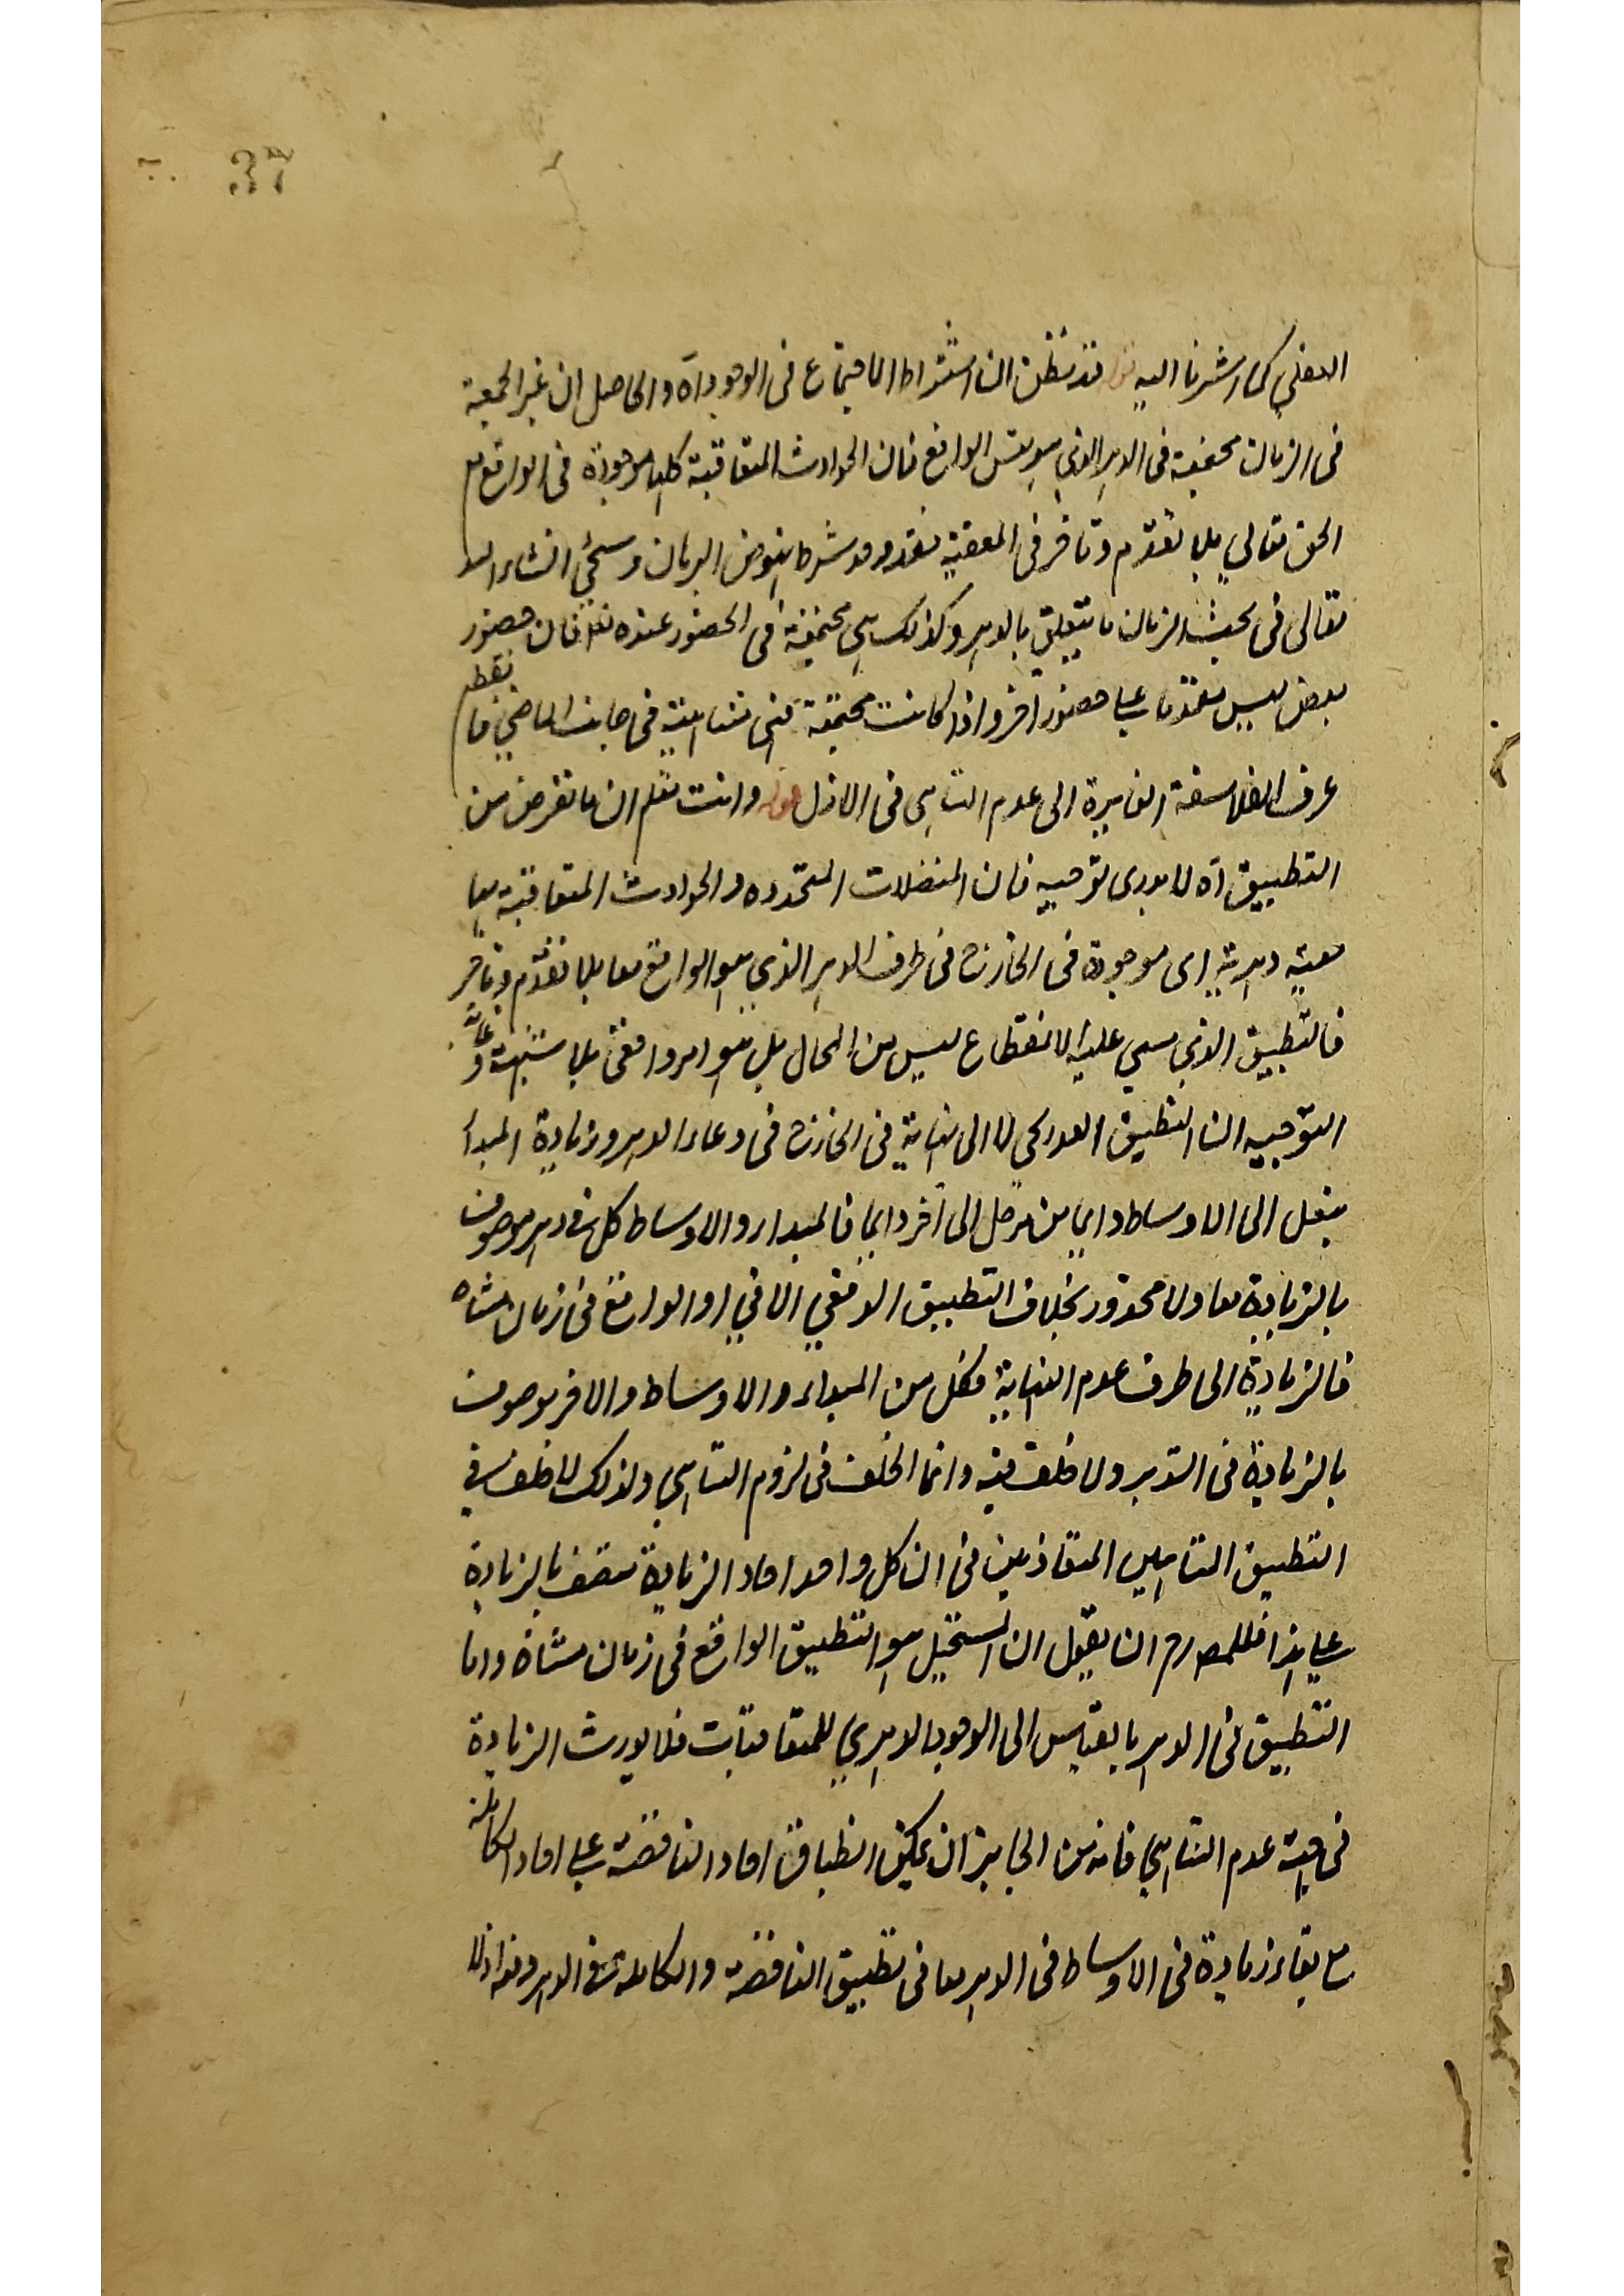 37
الفعلي كما اشرنا اليه قوله قد نظن ان اشتراط الاجتماع فى الوجود آه والحاصل ان غير المجتمعة
فى الزمان مجتمعة فى الدهر الذي هو متن الواقع فان الحوادث المتعاقبة كلها موجودة فى الواقع مع
الحق تعالي بلا تقدم وتاخر فى المعية فقد وجد شرط نهوض البرهان وسيجئ انشاء الله
تعالى فى بحث الزمان ما يتعلق بالدهر وكذلك هي مجتمعة فى الحضور عنده تعالى فان حضور
بعض ليس متقدما على حضور آخر واذا كانت مجتمعة فهى متناهية فى جانب الماضي فانقطع
عرف الفلاسفة الذاهبة الى عدم التناهى فى الازل قوله وانت تعلم ان ما تفرض من
التطبيق آه لا يدرى توجيهه فان المنفصلات المتجددة والحوادث المتعاقبة معا
معية دهرية اى موجودة فى الخارج فى ظرف الدهر الذي هو الواقع معا بلا تقدم وتاخر
فالتطبيق الذي مبني عليه الانقطاع ليس من المحال بل هو امر واقعى بلا شبهة وغاية
التوجيه ان التطبيق العددي لا الى نهاية فى الخارج فى وعاء الدهر وزيادة المبدأ
ينقل الى الاوساط دايما من مرحل الى آخر دايما فالمبداء والاوساط كل فى دهر موصوف
بالزيادة معا ولا محذور بخلاف التطبيق الوقفي الاني او الواقع فى زمان متناه
فالزيادة الى طرف عدم النهاية فكل من المبداء والاوساط والاخر موصوف
بالزيادة فى الدهر ولا خلف فيه وانما الخلف فى لزوم التناهي ولذلك لا خلف فى
التطبيق المتناهيين المتحاذيين فى ان كل واحد احاد الزيادة متصف بالزيادة
على هذا فللمصادم ان يقول ان المستحيل هو التطبيق الواقع فى زمان متناه واما
التطبيق فى الدهر بالقياس الى الوجود الدهري للمتعاقبات فلا يورث الزيادة
فى جهة عدم التناهي فانه من الجايز ان يمكن انطباق احاد الناقصة على احاد الكاملة
مع بقاء زيادة فى الاوساط فى الدهر معا فى تطبيق الناقصة والكاملة فى الدهر